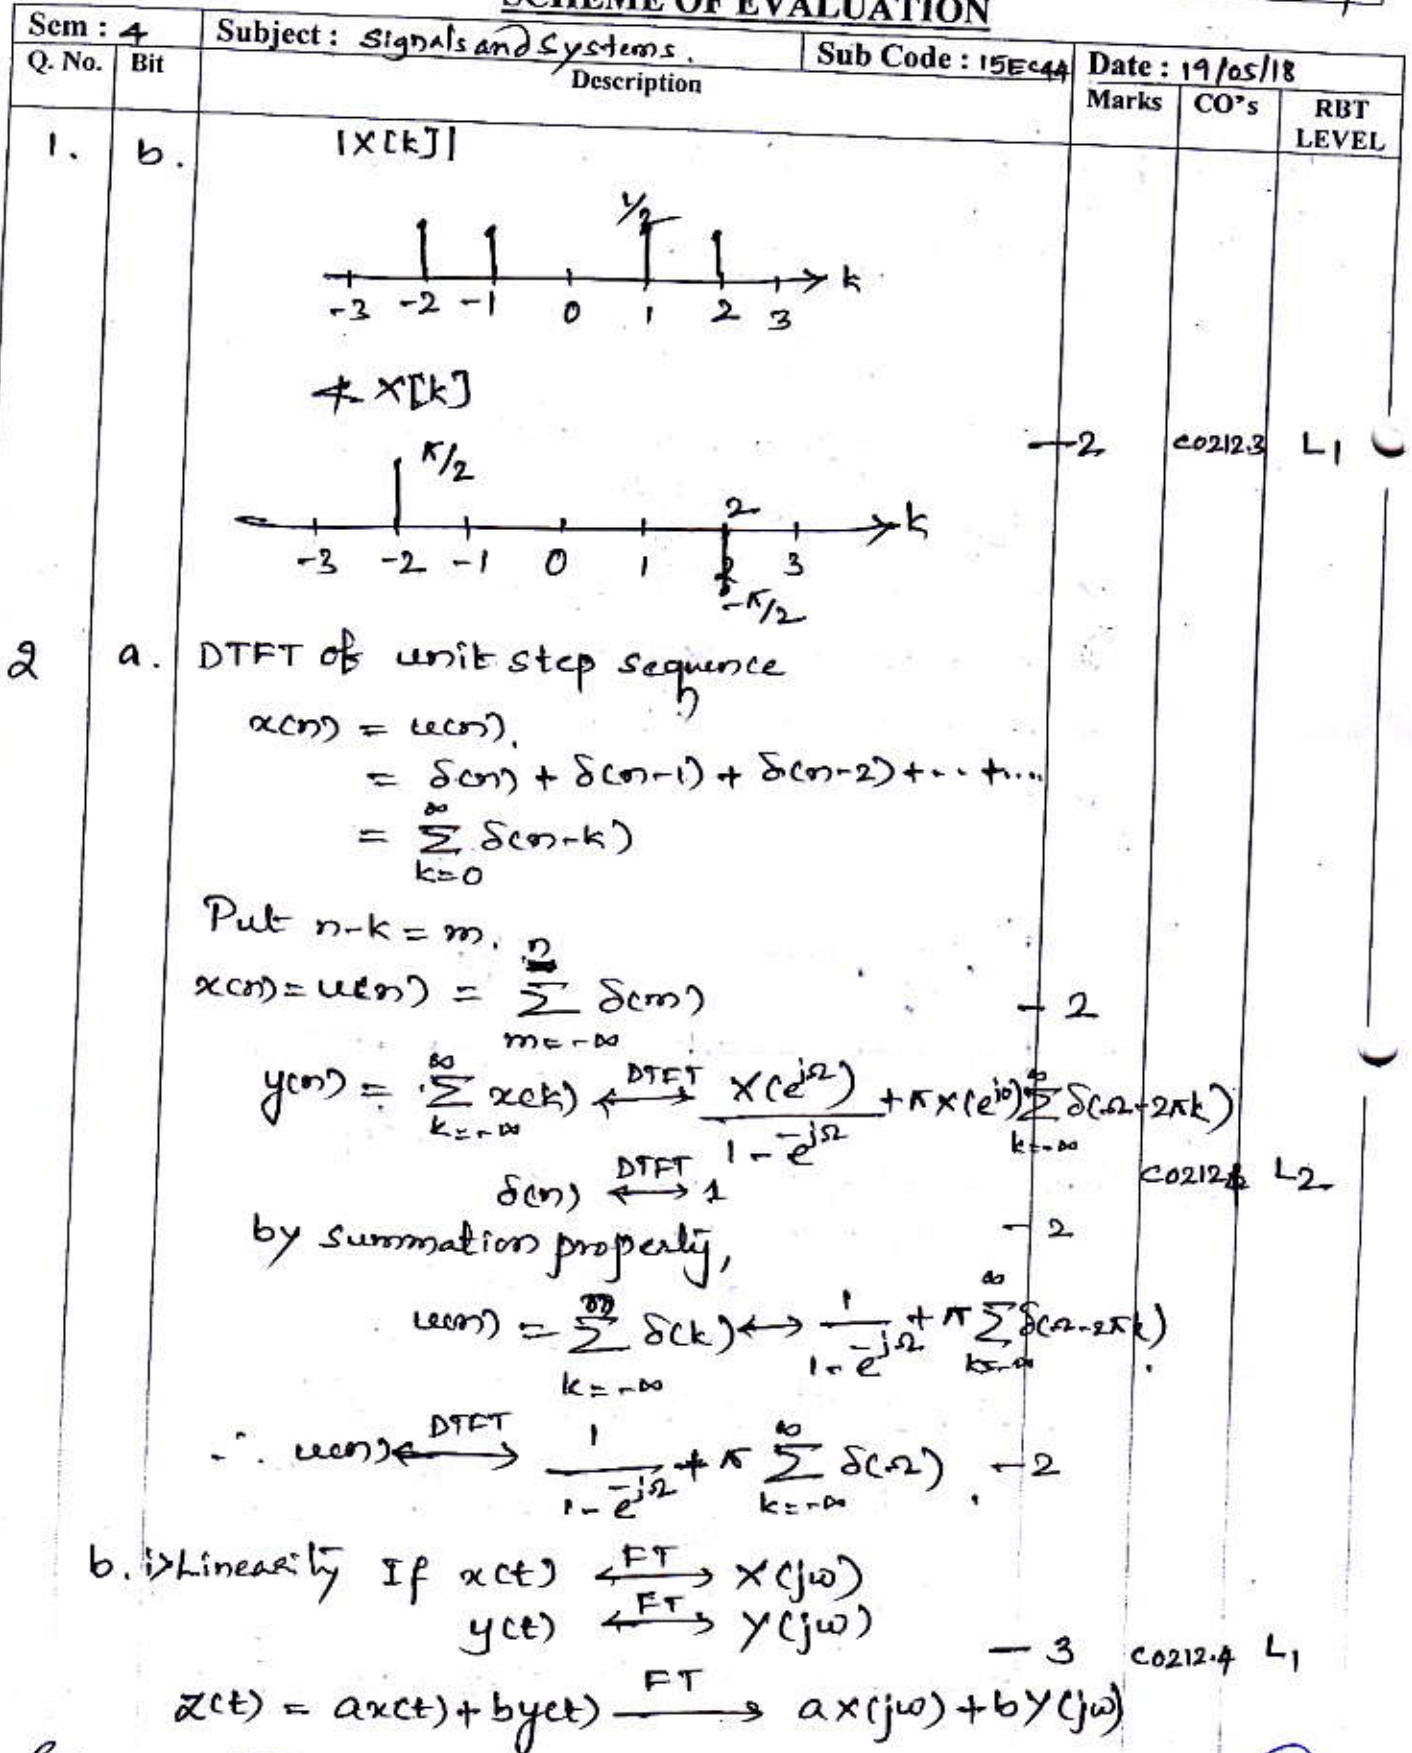 SCHEME OF EVALUATION
Sem : 4 Subject : Signals and Systems. Sub Code : 15EC44 Date : 19/05/18
Q. No. Bit Description Marks CO's RBT LEVEL
1. b. |X[k]|
1/2
-3 -2 -1 0 1 2 3 k
∡ X[k]
-2 CO212.3 L1
π/2
2 k
-3 -2 -1 0 1 2 3
-π/2
2 a. DTFT of unit step sequence
x(n) = u(n).
= δ(n) + δ(n-1) + δ(n-2) + .. + ...
= ∞ Σ k=0 δ(n-k)
Put n-k = m.
x(n) = u(n) = n Σ m=-∞ δ(m) - 2
y(n) = ∞ Σ k=-∞ x(k) ⟷DTFT X(e^jΩ) / 1-e^-jΩ + π X(e^j0) ∞ Σ k=-∞ δ(Ω-2πk)
δ(n) ⟷DTFT 1 CO212. L2
by summation property, - 2
u(n) = n Σ k=-∞ δ(k) ⟷ 1 / 1-e^-jΩ + π ∞ Σ k=-∞ δ(Ω-2πk).
∴ u(n) ⟷DTFT 1 / 1-e^-jΩ + π ∞ Σ k=-∞ δ(Ω). - 2
b. i> Linearity If x(t) ⟷FT X(jω)
y(t) ⟷FT Y(jω)
- 3 CO212.4 L1
z(t) = ax(t) + by(t) ⟶FT aX(jω) + bY(jω)